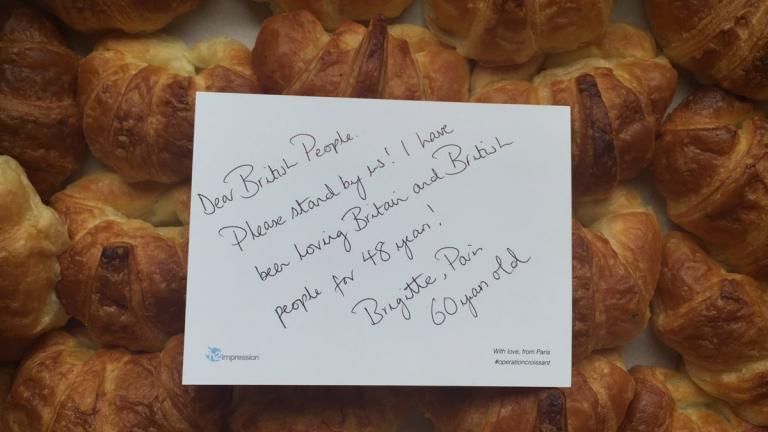 Dear British People.
Please stand by us! I have
been loving Britain and British
people for 48 years!
Brigitte, Paris
60 years old
n2impression
With love, from Paris
#operationcroissant